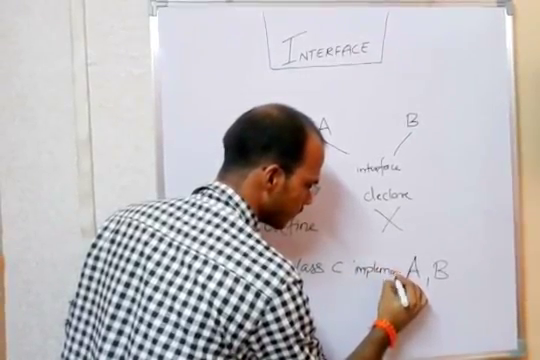 INTERFACE
A B
interface
declare
class C implemen A, B